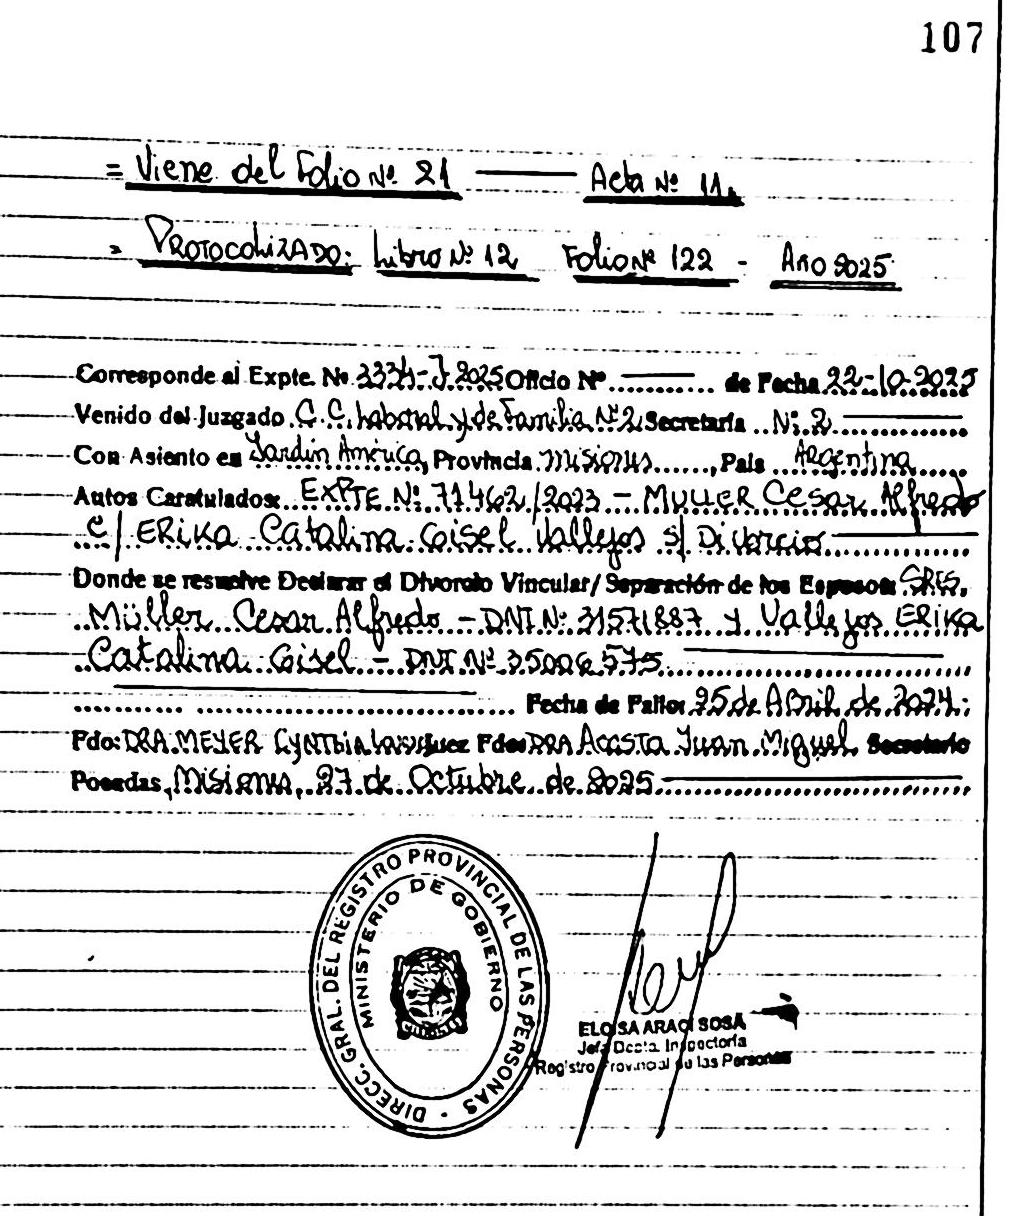 107
= Viene del Folio Nº 21 — Acta Nº 11.
= PROTOCOLIZADO: Libro Nº 12 Folio Nº 122 - Año 2025
Corresponde al Expte. Nº 3334-J-2025 Oficio Nº ........... de Fecha 22-10-2025
Venido del Juzgado C.C. Laboral y de Familia Nº 2 Secretaría Nº 2
Con Asiento en Jardín América, Provincia Misiones, País Argentina
Autos Caratulados: EXPTE Nº 71462/2023 - MULLER Cesar Alfredo
C/ ERIKA Catalina Gisel Vallejos s/ Divorcio
Donde se resuelve Declarar el Divorcio Vincular/ Separación de los Esposos: SRES.
Müller Cesar Alfredo - DNI Nº 31571887 y Vallejos ERIKA
Catalina Gisel - DNI Nº 35006575
Fecha de Fallo: 25 de Abril de 2024.
Fdo: DRA. MEYER CYNTHIA Juez Fdo: DRA Acosta Juan Miguel Secretario
Posadas, Misiones, 27 de Octubre de 2025
DIRECC. GRAL. DEL REGISTRO PROVINCIAL DE LAS PERSONAS
MINISTERIO DE GOBIERNO
ELOISA ARACI SOSA
Jefa Dpto. Inspectoría
Registro Provincial de las Personas